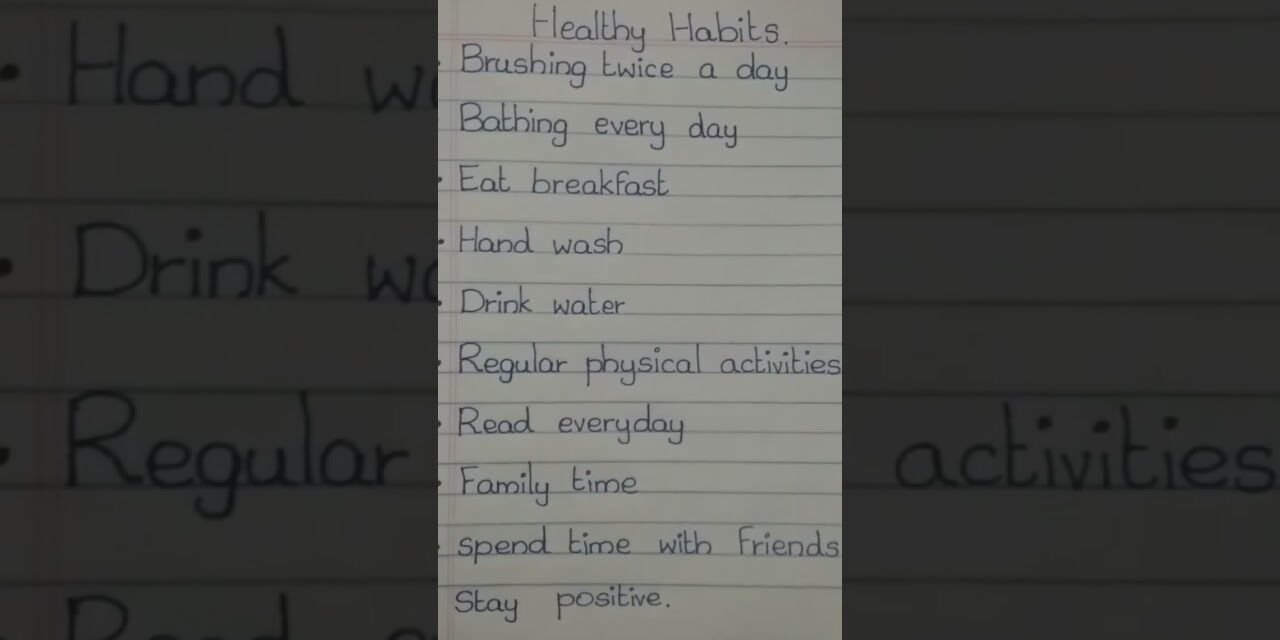 Healthy Habits.
• Brushing twice a day
Bathing every day
• Eat breakfast
• Hand wash
• Drink water
• Regular physical activities
• Read everyday
• Family time
• spend time with friends
Stay positive.